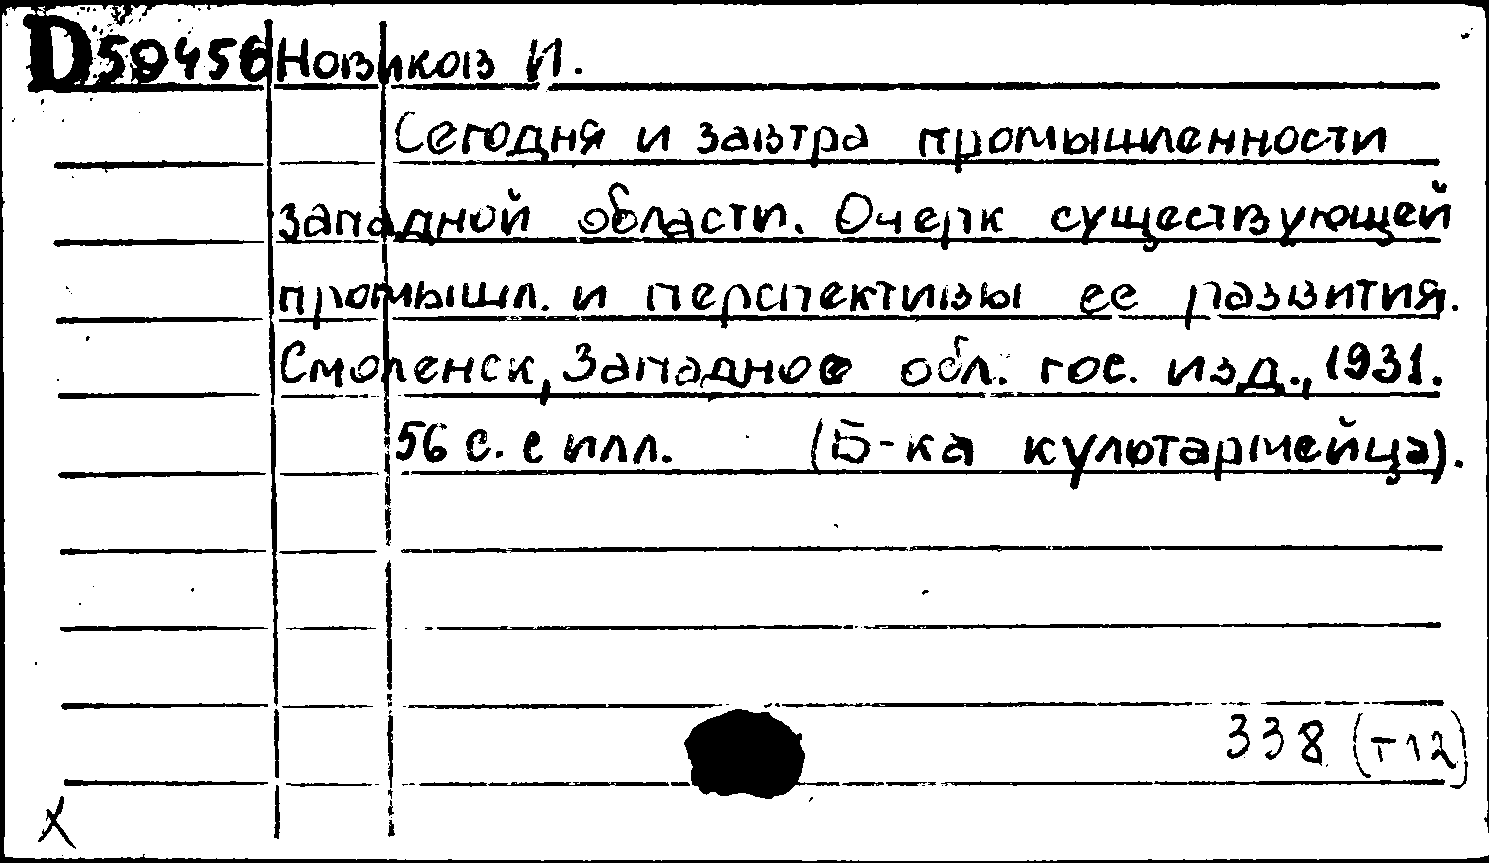 D59456 Новиков И.
Сегодня и завтра промышленности
западной области. Очерк существующей
промышл. и перспективы ее развития.
Смоленск, Западное обл. гос. изд., 1931.
56 с. с илл. (Б-ка культармейца).
338 (т12)
X